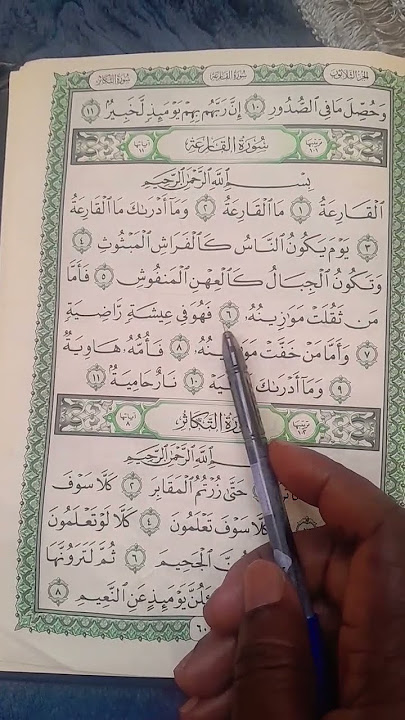 الجزء الثلاثون سورة القارعة سورة التكاثر
وَحُصِّلَ مَا فِي ٱلصُّدُورِ ١٠ إِنَّ رَبَّهُم بِهِمْ يَوْمَئِذٍ لَّخَبِيرٌۢ ١١
ترتيبها ١٠١ سُورَةُ القَارِعَة آياتها ١١
بِسْمِ ٱللَّهِ ٱلرَّحْمَٰنِ ٱلرَّحِيمِ
ٱلْقَارِعَةُ ١ مَا ٱلْقَارِعَةُ ٢ وَمَآ أَدْرَىٰكَ مَا ٱلْقَارِعَةُ
٣ يَوْمَ يَكُونُ ٱلنَّاسُ كَٱلْفَرَاشِ ٱلْمَبْثُوثِ ٤
وَتَكُونُ ٱلْجِبَالُ كَٱلْعِهْنِ ٱلْمَنفُوشِ ٥ فَأَمَّا
مَن ثَقُلَتْ مَوَٰزِينُهُۥ ٦ فَهُوَ فِي عِيشَةٍ رَّاضِيَةٍ
٧ وَأَمَّا مَنْ خَفَّتْ مَوَٰزِينُهُۥ ٨ فَأُمُّهُۥ هَاوِيَةٌ
٩ وَمَآ أَدْرَىٰكَ ١٠ نَارٌ حَامِيَةٌۢ ١١
ترتيبها ١٠٢ سُورَةُ التَّكَاثُر آياتها ٨
بِسْمِ ٱللَّهِ ٱلرَّحْمَٰنِ ٱلرَّحِيمِ
حَتَّىٰ زُرْتُمُ ٱلْمَقَابِرَ ٢ كَلَّا سَوْفَ
كَلَّا سَوْفَ تَعْلَمُونَ ٤ كَلَّا لَوْ تَعْلَمُونَ
ٱلْجَحِيمَ ٦ ثُمَّ لَتَرَوُنَّهَا
يَوْمَئِذٍ عَنِ ٱلنَّعِيمِ ٨